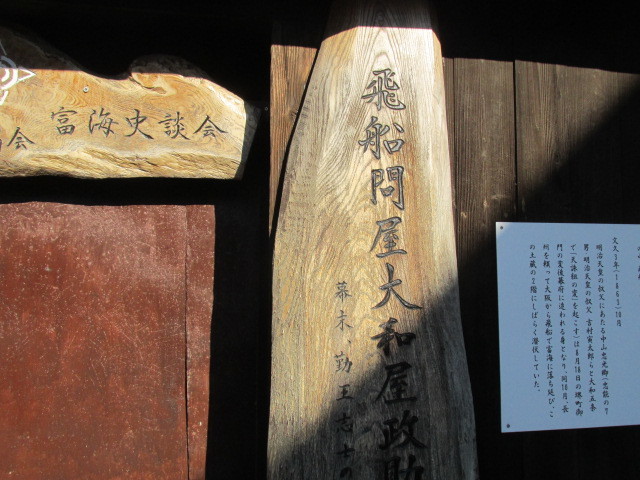 会
富海史談会
飛船問屋大和屋政助
幕末、勤王志士の
文久3年(1863)10月
明治天皇の叔父にあたる中山忠光卿(忠能の7
男 明治天皇の叔父 吉村寅太郎らと大和五条
で「天誅組の変」を起こす)は8月18日の堺町御
門の変後幕府に追われる身となり、同10月、長
州を頼って大阪から飛船で富海に落ち延び、こ
の土蔵の2階にしばらく潜伏していた。